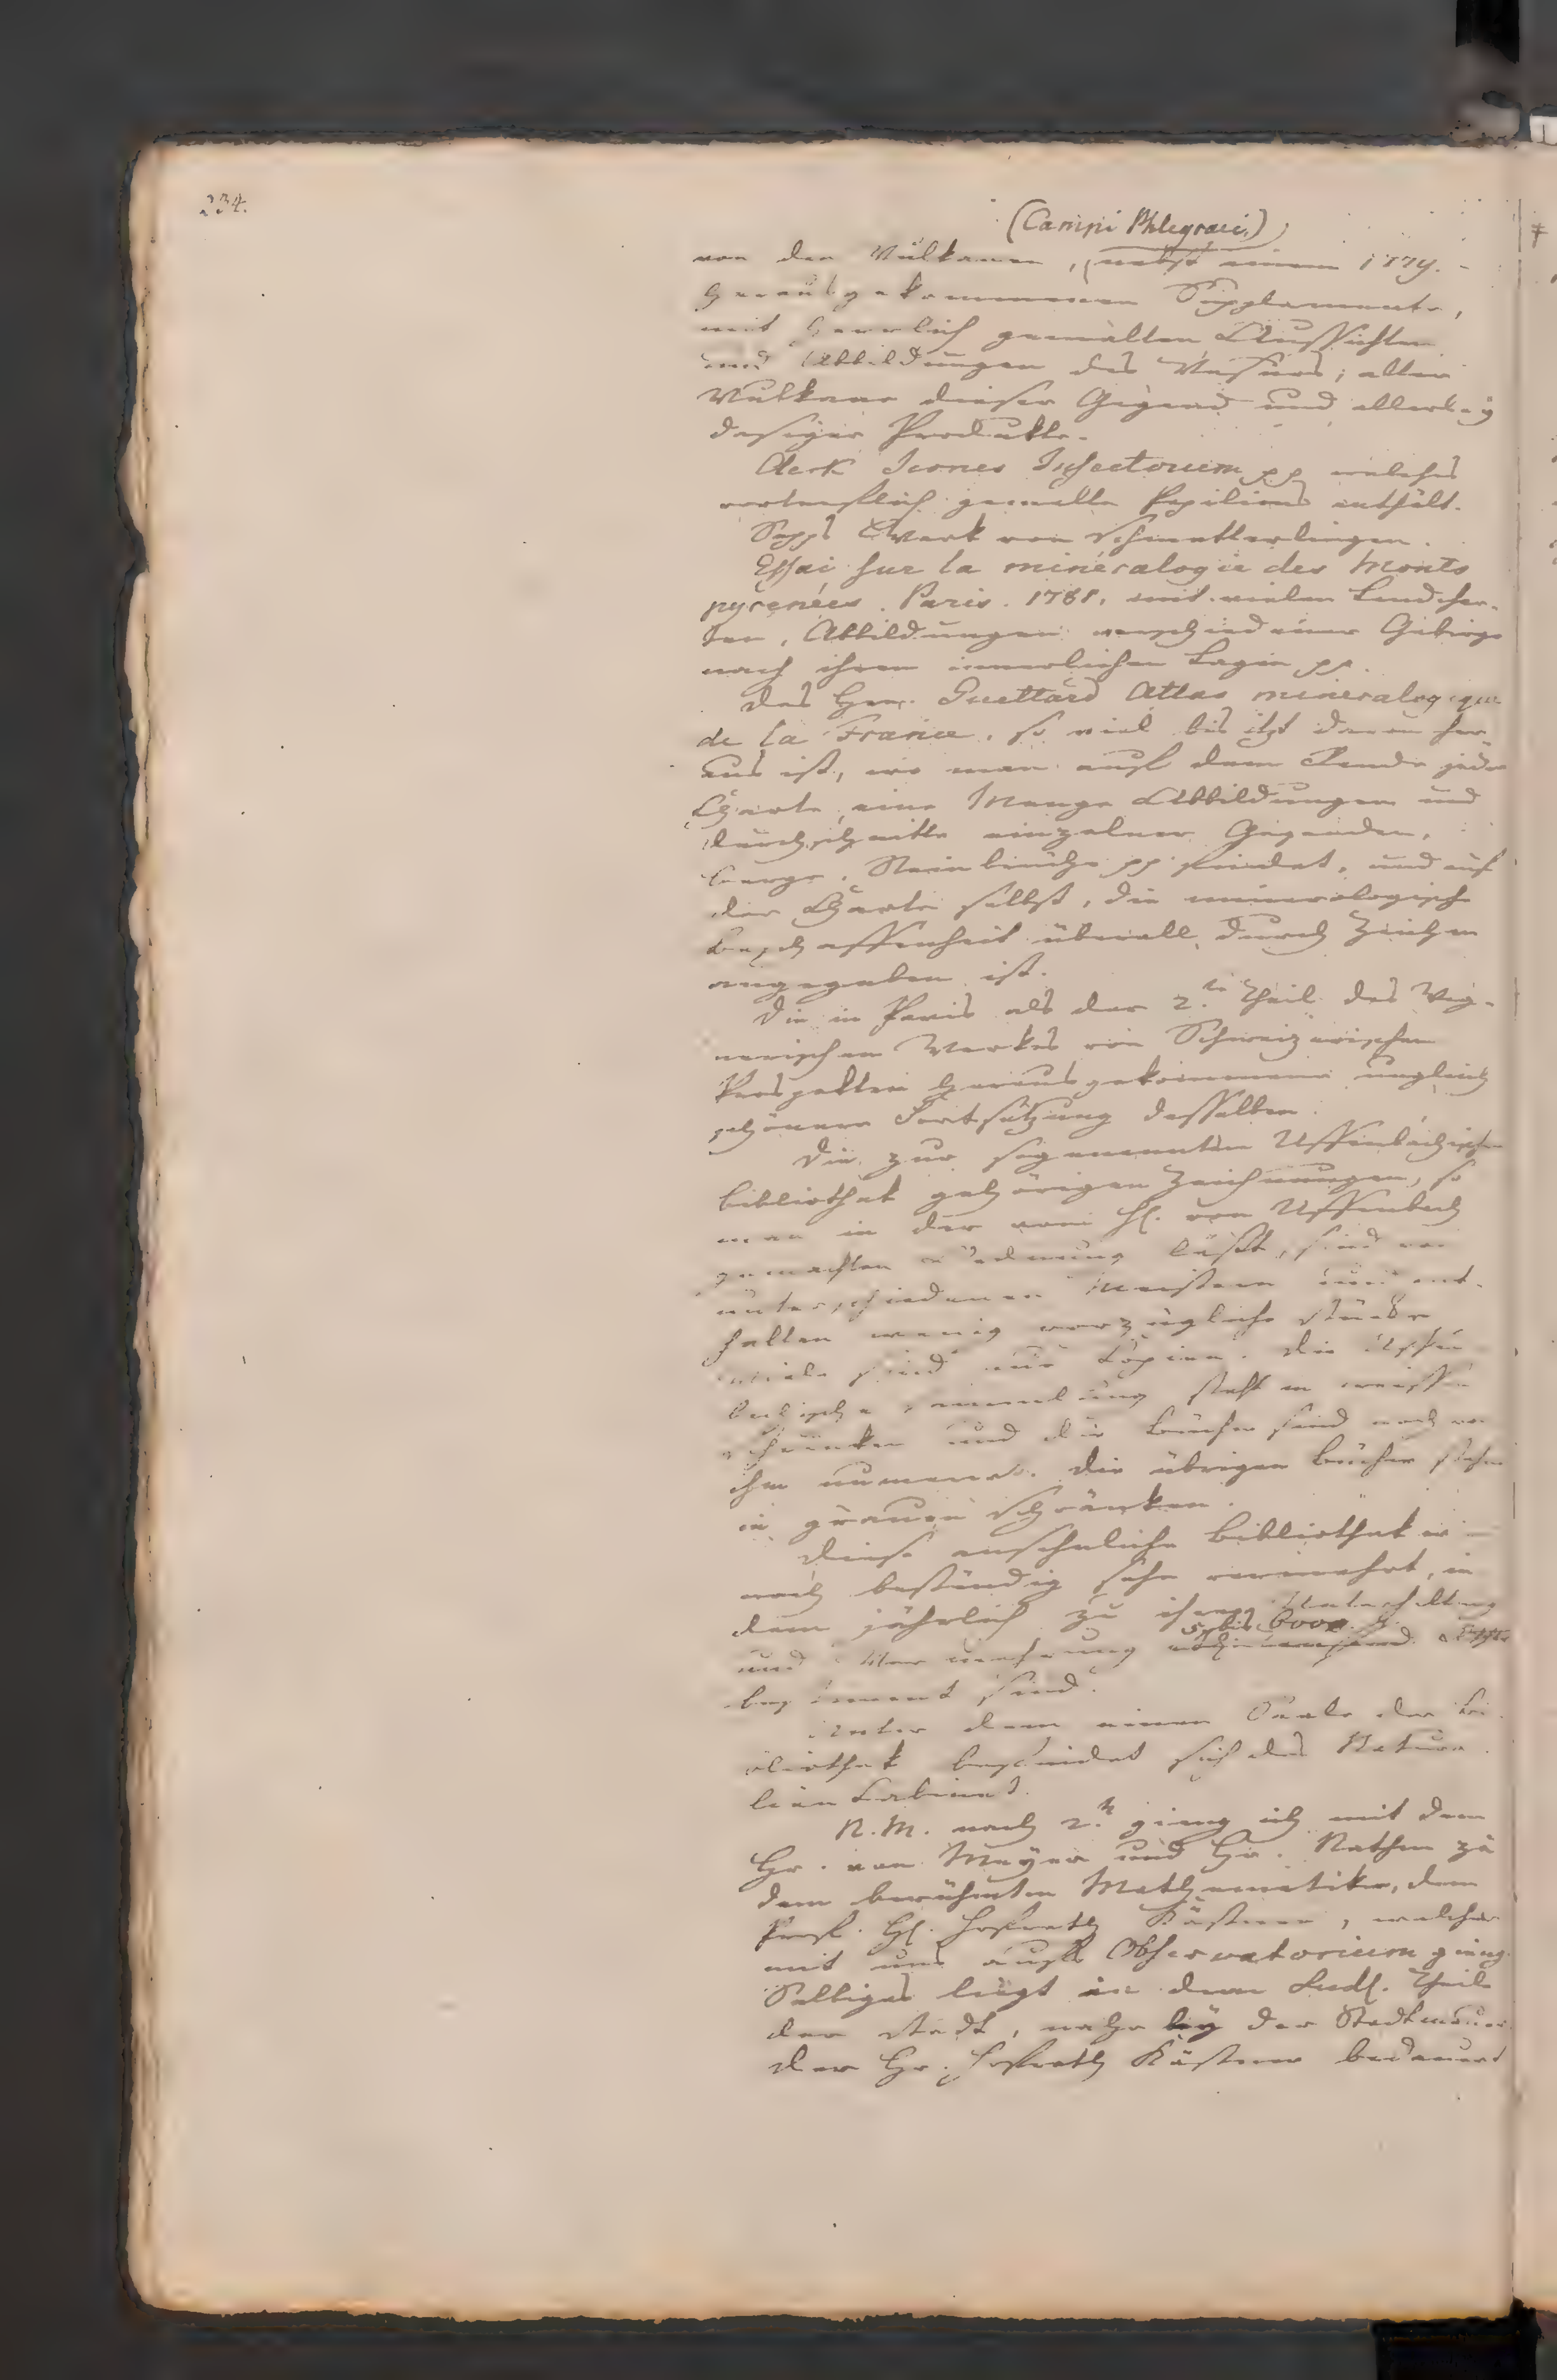 234.
(Campi Phlegraei.)
von den Vulkanen, nebst einem 1779.
herausgekommenen Supplemente,
mit herrlich gemalten Aussichten
und Abbildungen des Vesuvs, aller
Vulkane dieser Gegend und allerley
dasiger Produkte.
Clerk Icones Insectorum pp welches
vortreflich gemalte Papilions enthält.
Sepps Werk von Schmetterlingen.
Essai sur la minéralogie des Monts
pyrenées. Paris. 1781. mit vielen Landchar-
ten, Abbildungen verschiedener Gebirge
nach ihren innerlichen Lagen pp.
des Herr. Guettard Atlas mineralogique
de la France, so viel bis itzt davon her-
aus ist, wo man auf dem Rande jeder
Charte, eine Menge Abbildungen und
durchschnitte einzelner Gegenden,
Berge, Steinbrüche pp findet, und auf
der Charte selbst, die mineralogische
Beschaffenheit überall durch Zeichen
angegeben ist.
Die in Paris als der 2.te Theil des Wag-
nerischen Werkes von Schweizerischen
Prospekten herausgekommene ungleich
schönere Fortsetzung desselben.
Die zur sogenannten Uffenbachischen
Bibliothek gehörigen Zeichnungen, so
man in der vom H. von Uffenbach
gemachten Ordnung läßt, sind von
unterschiedenen Meistern und ent-
halten wenig vorzügliche Stücke
viele sind nur Copien. Die Uffen-
bachische Sammlung steht in weissen
Schränken und die Bücher sind nach von
ihm numerirt. Die übrigen Bücher stehen
in grauen Schränken.
Diese ansehnliche Bibliothek wird
noch beständig sehr vermehrt, in
dem jährlich zu ihrer Unterhaltung
5 bis 6000
und Vermehrung
bestimmt sind.
Unter dem einen Saale der Bi-
bliothek befindet sich das Natura-
lien Cabinet.
N.M. nach 2.h gieng ich mit dem
Hr. von Meyer und Hr. Nathen zu
dem berühmten Mathematiker, dem
Prof. H. Hofrath Kästner, welcher
mit uns aufs Observatorium gieng.
Selbiges liegt in dem Theile
der Stadt, nahe bey der Stadtmauer.
Der Hr. Hofrath Kästner bedauert